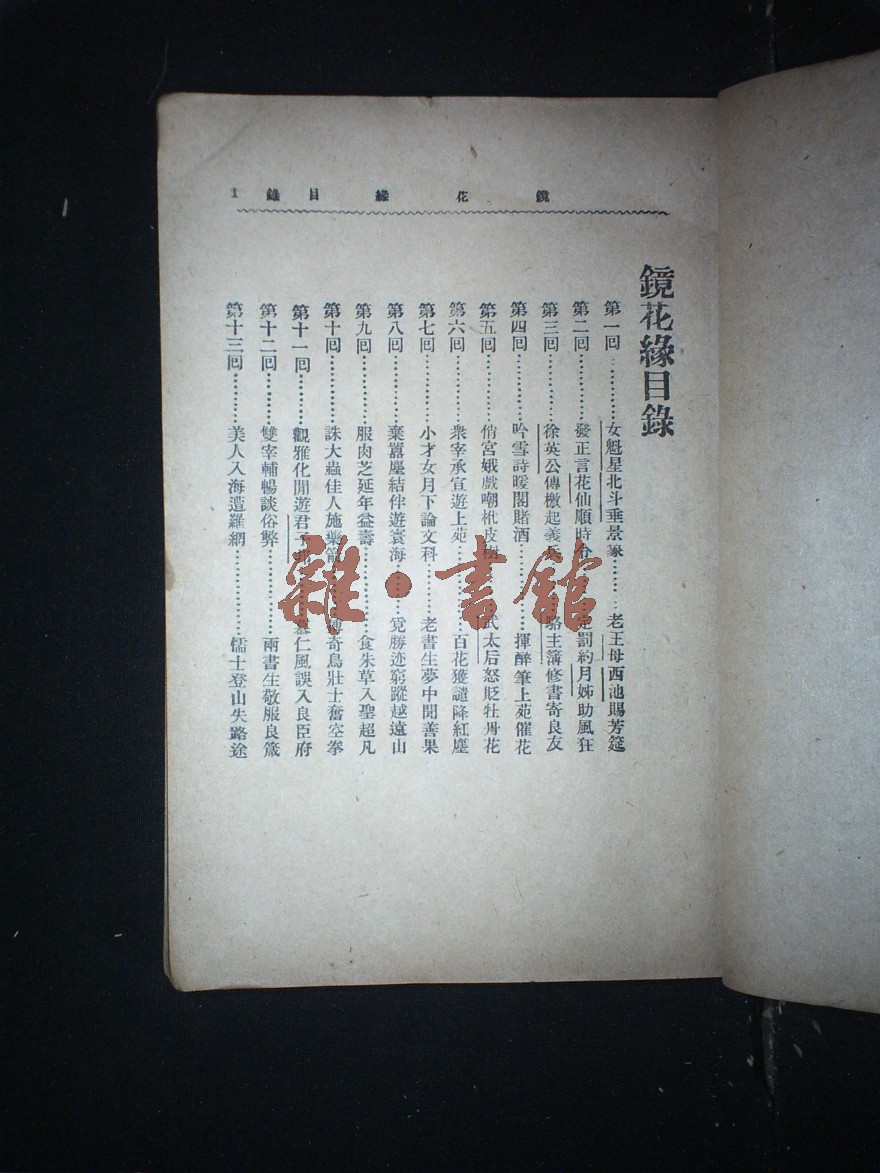 鏡花緣目錄 1
鏡花緣目錄
第一回…………女魁星北斗垂景象…………老王母西池賜芳筵
第二回…………發正言花仙順時令…………罰約月姊助風狂
第三回…………徐英公傳檄起義兵…………駱主簿修書寄良友
第四回…………吟雪詩暖閣賭酒…………揮醉筆上苑催花
第五回…………俏宮娥戲嘲枇皮樹…………武太后怒貶牡丹花
第六回…………衆宰承宣遊上苑…………百花獲譴降紅塵
第七回…………小才女月下論文科…………老書生夢中聞善果
第八回…………棄囂塵結伴遊寰海…………覓勝迹窮蹤越遠山
第九回…………服肉芝延年益壽…………食朱草入聖超凡
第十回…………誅大蟲佳人施藥箭…………搏奇鳥壯士奮空拳
第十一回…………觀雅化閒遊君子邦…………慕仁風誤入良臣府
第十二回…………雙宰輔暢談俗弊…………兩書生敬服良箴
第十三回…………美人入海遭羅網…………儒士登山失路途
雜·書館